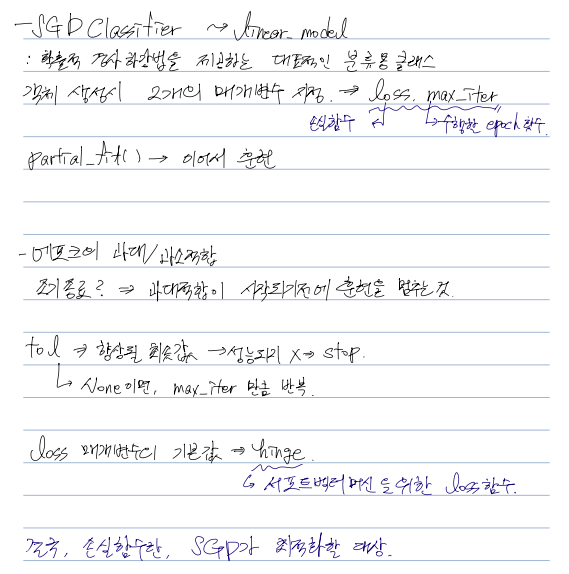 - SGD Classifier ~> linear_model
: 확률적 경사하강법을 제공하는 대표적인 분류용 클래스
객체 생성시 2개의 매개변수 지정. ⇒ loss, max_iter
손실함수 ↲ ↳ 수행할 epoch 횟수.
partial_fit() → 이어서 훈련
- 에포크의 과대/과소적합
조기종료? ⇒ 과대적합이 시작되기전에 훈련을 멈추는 것.
tol ⇒ 향상될 최솟값 → 성능되기 X ⇒ stop.
↳ None이면, max_iter 만큼 반복.
loss 매개변수의 기본값 ⇒ hinge.
↳ 서포트벡터머신을 위한 loss함수.
결국, 손실함수란, SGD가 최적화할 대상.